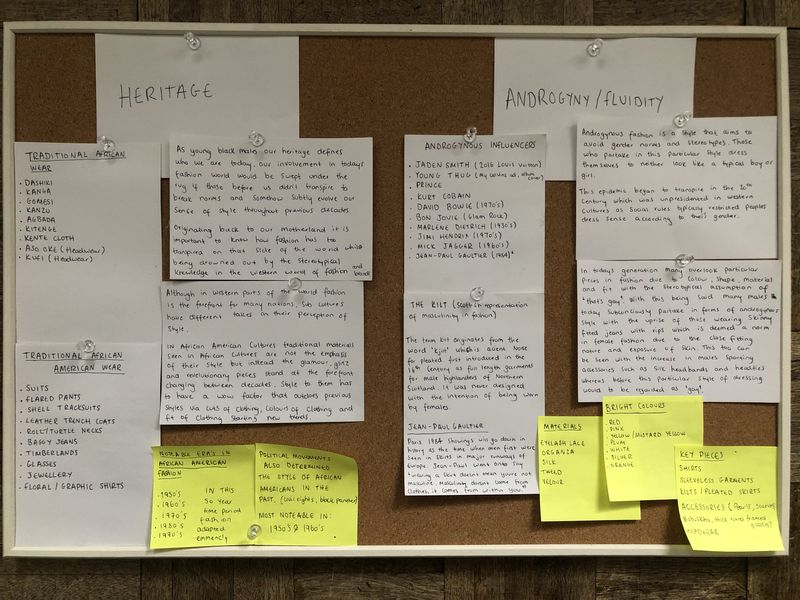 HERITAGE
TRADITIONAL AFRICAN
WEAR
• DASHIKI
• KANGA
• GOMESI
• KANZU
• AGBADA
• KITENGE
• KENTE CLOTH
• ASO OKE (Headwear)
• KUFI (Headwear)
As young black males our heritage defines
who we are today. Our involvement in todays
fashion world would be swept under the
rug if those before us didn't transpire to
break norms and somehow subtly evolve our
sense of style throughout previous decades.
Originating back to our motherland it is
important to know how fashion has to
transpire on that side of the world while
being drowned out by the stereotypical
knowledge in the western world of fashion and
Although in western parts of the world fashion
is the forefront for many nations, sub cultures
have different takes on their perception of
style.
IN African American Cultures traditional materials
seen in African Cultures are not the emphasis
of their style but instead the glamour, glitz
and revolutionary pieces stand at the forefront
changing between decades. Style to them has
to have a wow factor that outdoes previous
styles via cuts of clothing, colours of clothing and
fit of clothing starting new trends.
TRADITIONAL AFRICAN
AMERICAN WEAR
• SUITS
• FLARED PANTS
• SHELL TRACKSUITS
• LEATHER TRENCH COATS
• ROLL/TURTLE NECKS
• BAGGY JEANS
• TIMBERLANDS
• GLASSES
• JEWELLERY
• FLORAL / GRAPHIC SHIRTS
NOTABLE ERA'S IN
AFRICAN AMERICAN
FASHION
• 1950'S IN THIS
• 1960'S 50 year
• 1970'S time period
• 1980'S fashion
• 1990'S adapted
POLITICAL MOVEMENTS
ALSO DETERMINED
THE STYLE OF AFRICAN
AMERICANS IN THE
PAST. (Civil rights, black panther)
MOST NOTEABLE IN:
1950'S & 1960'S
ANDROGYNY/FLUIDITY
ANDROGYNOUS INFLUENCERS
• JADEN SMITH (2016 Louis Vuitton)
• YOUNG THUG (My album cover)
• PRINCE
• KURT COBAIN
• DAVID BOWIE (1970's)
• BON JOVIE (Glam Rock)
• MARLENE DIETRICH (1930's)
• JIMI HENDRIX (1970's)
• MICK JAGGER (1960's)
• JEAN-PAUL GAULTIER (1984)*
THE KILT (Scottish representation
of masculinity in fashion)
The term kilt originates from the
word "kjilt" which is Norse
for pleated first introduced in the
16th Century as full length garments
for male highlanders of Northern
Scotland. It was never designed
with the intention of being worn
by females.
JEAN-PAUL GAULTIER
Paris 1984 showings will go down in
history as the time when men first were
seen in skirts in major runways of
europe. Jean-Paul went onto say
"wearing a skirt doesn't mean you're not
masculine. Masculinity doesn't come from
clothes, it comes from within you."
Androgynous fashion is a style that aims to
avoid gender norms and stereotypes. Those
who partake in this particular style dress
themselves to neither look like a typical boy or
girl.
This epidemic began to transpire in the 20th
Century which was unpresidented in western
Cultures as social rules typically restricted peoples
dress sense according to their gender.
In todays generation many overlook particular
pieces in fashion due to colour, shape, material
and fit with the stereotypical assumption of
"thats gay". With this being said many males
today subconciously partake in forms of androgynous
style with the uprise of those wearing skinny
fitted jeans with rips which is deemed a norm
in female fashion due to the close fitting
nature and exposure of skin. This too can
be seen with the increase in males sporting
accessories such as silk headbands and headties
whereas before this particular style of dressing
would be regarded as "gay".
MATERIALS
EYELASH LACE
ORGANZA
SILK
TWEED
VELOUR
BRIGHT COLOURS
• RED
• PINK
• YELLOW/MUSTARD YELLOW
• PLUM
• WHITE
• SILVER
• ORANGE
KEY PIECES
SHIRTS
SLEEVELESS GARMENTS
KILTS / PLEATED SKIRTS
ACCESSORIES (Pearls,
thick round framed
glasses)
HEADWEAR